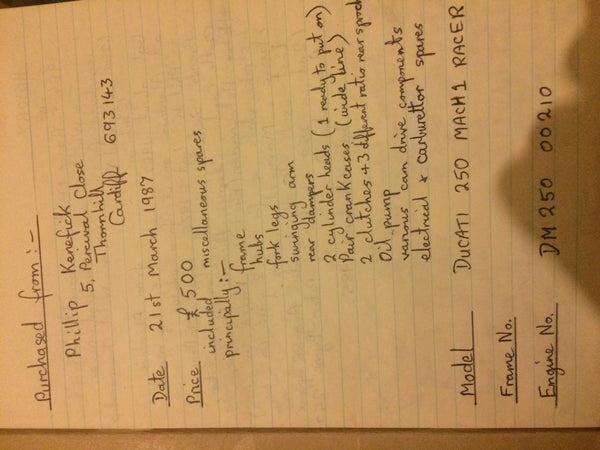 Purchased from:-
Phillip Kenefick
5, Percival Close
Thornhill
Cardiff 693143
Date 21st March 1987
Price £500
included miscellaneous spares
principally:-
frame
hubs
fork legs
swinging arm
rear dampers
2 cylinder heads (1 ready to put on)
Pair crankcases (wide line)
2 clutches + 3 different ratio rear sproc
Oil pump
various cam drive components
electrical & carburettor spares
Model DUCATI 250 MACH 1 RACER
Frame No.
Engine No. DM 250 00210